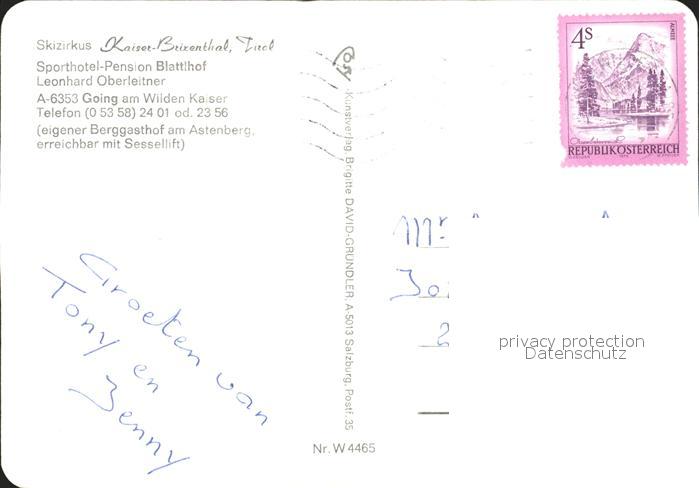 Skizirkus Kaiser-Brixenthal, Tirol
Sporthotel-Pension Blattlhof
Leonhard Oberleitner
A-6353 Going am Wilden Kaiser
Telefon (0 53 58) 24 01 od. 23 56
(eigener Berggasthof am Astenberg,
erreichbar mit Sessellift)
Kunstverlag Brigitte DAVID-GRÜNDLER, A-5013 Salzburg, Postf. 35
4S
ALMSEE
REPUBLIK ÖSTERREICH
Groeten van
Tony en
Jenny
Mr
privacy protection
Datenschutz
Nr. W 4465